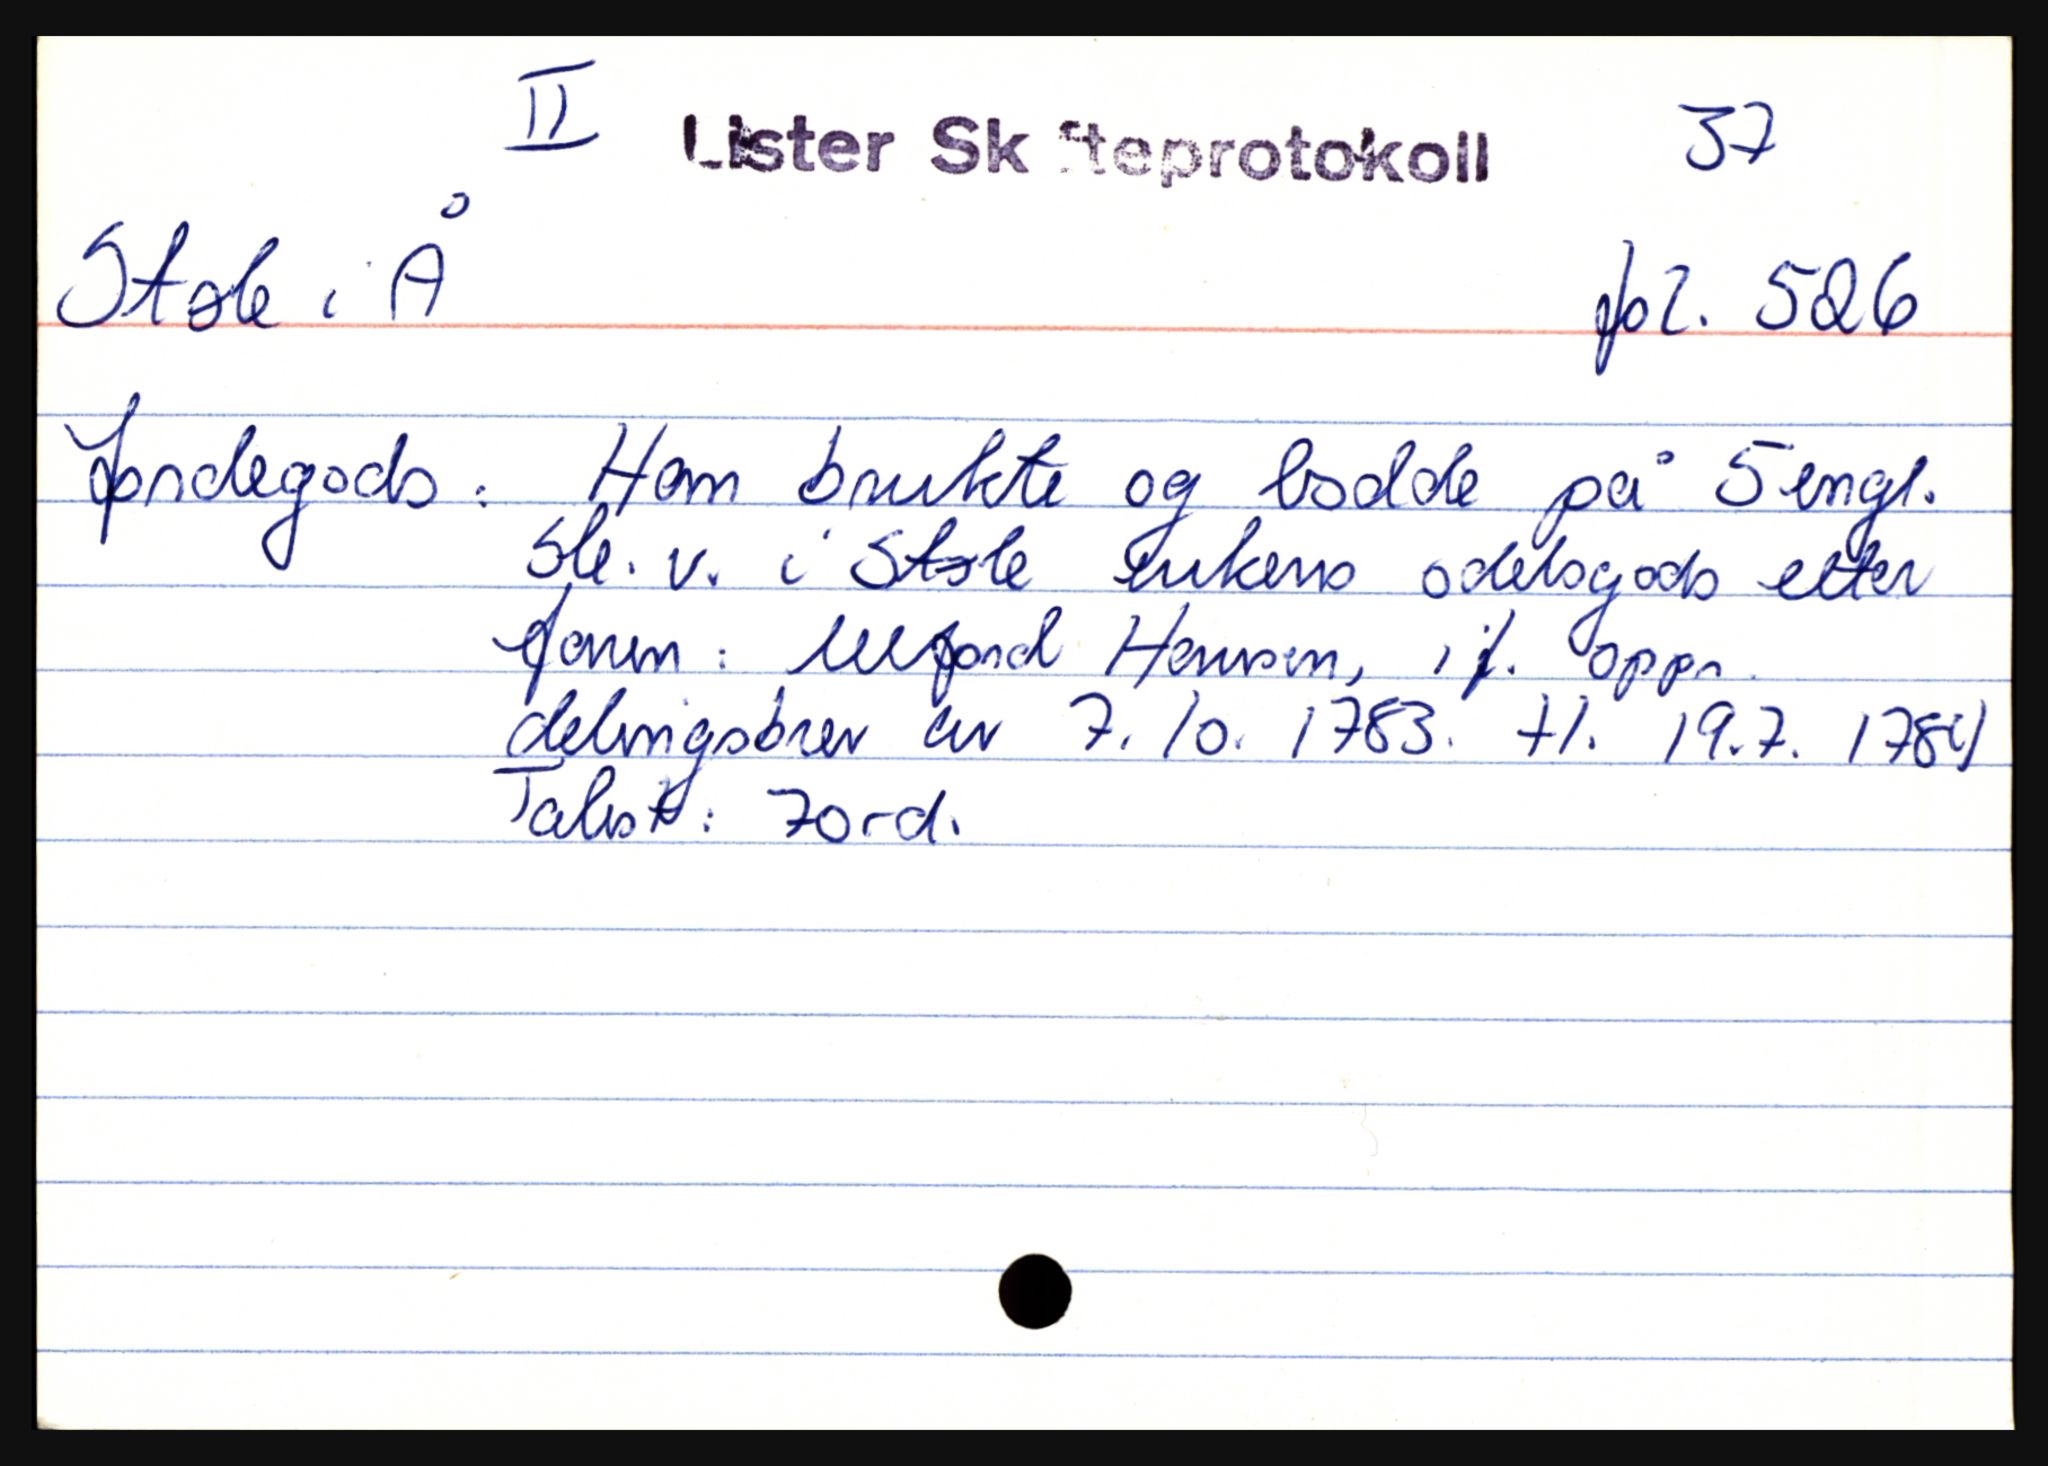 II Lister Skifteprotokoll 37
Støle i Å fol. 526
Jordegods: Han brukte og bodde på 5 engl.
sle. v. i Støle enkens odelsgods etter
faren: Ulford Hansen, if. oppr.
delingsbrev av 7.10.1783. tl. 19.7.1784
Takst: 70 rd.